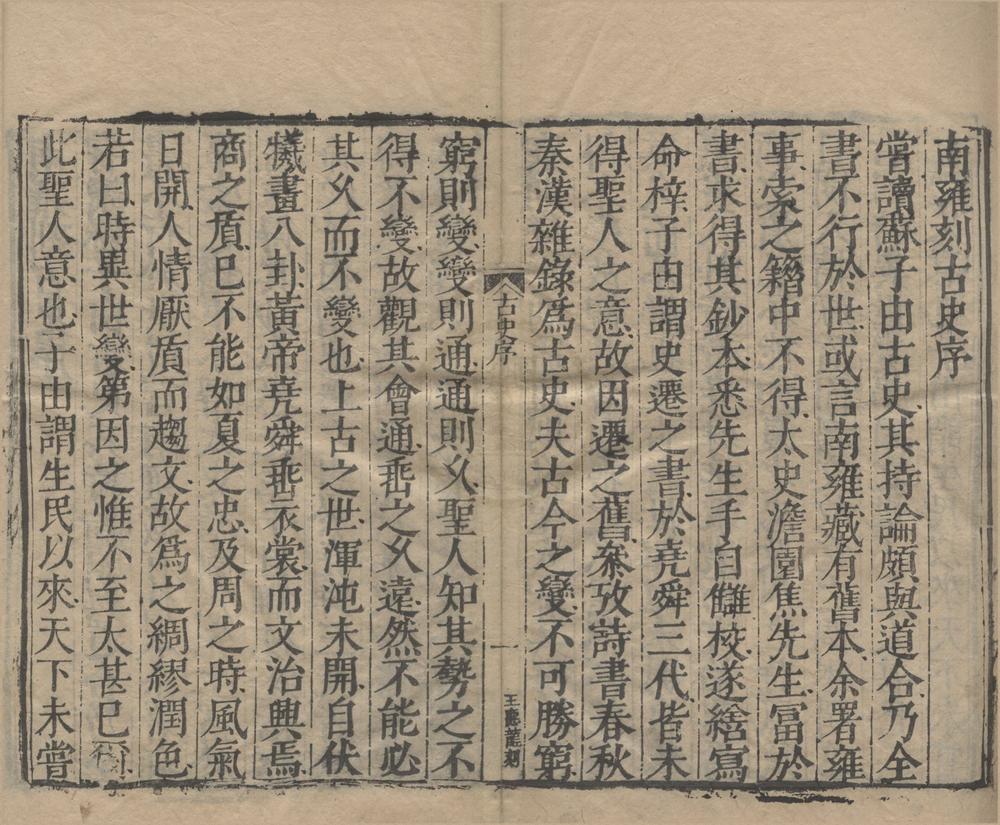 南雍刻古史序
嘗讀蘇子由古史其持論頗與道合乃全
書不行於世或言南雍藏有舊本余署雍
事索之籍中不得太史澹園焦先生富於
書求得其鈔本悉先生手自讎校遂繕寫
命梓子由謂史遷之書於堯舜三代皆未
得聖人之意故因遷之舊叅攷詩書春秋
秦漢雜錄爲古史夫古今之變不可勝窮
古史序
一
王應龍刻
窮則變變則通通則久聖人知其勢之不
得不變故觀其會通垂之久遠然不能必
其久而不變也上古之世渾沌未開自伏
犧畫八卦黃帝堯舜垂衣裳而文治興焉
商之質已不能如夏之忠及周之時風氣
日開人情厭質而趨文故爲之綢繆潤色
若曰時異世變第因之惟不至太甚已爾
此聖人意也子由謂生民以來天下未嘗